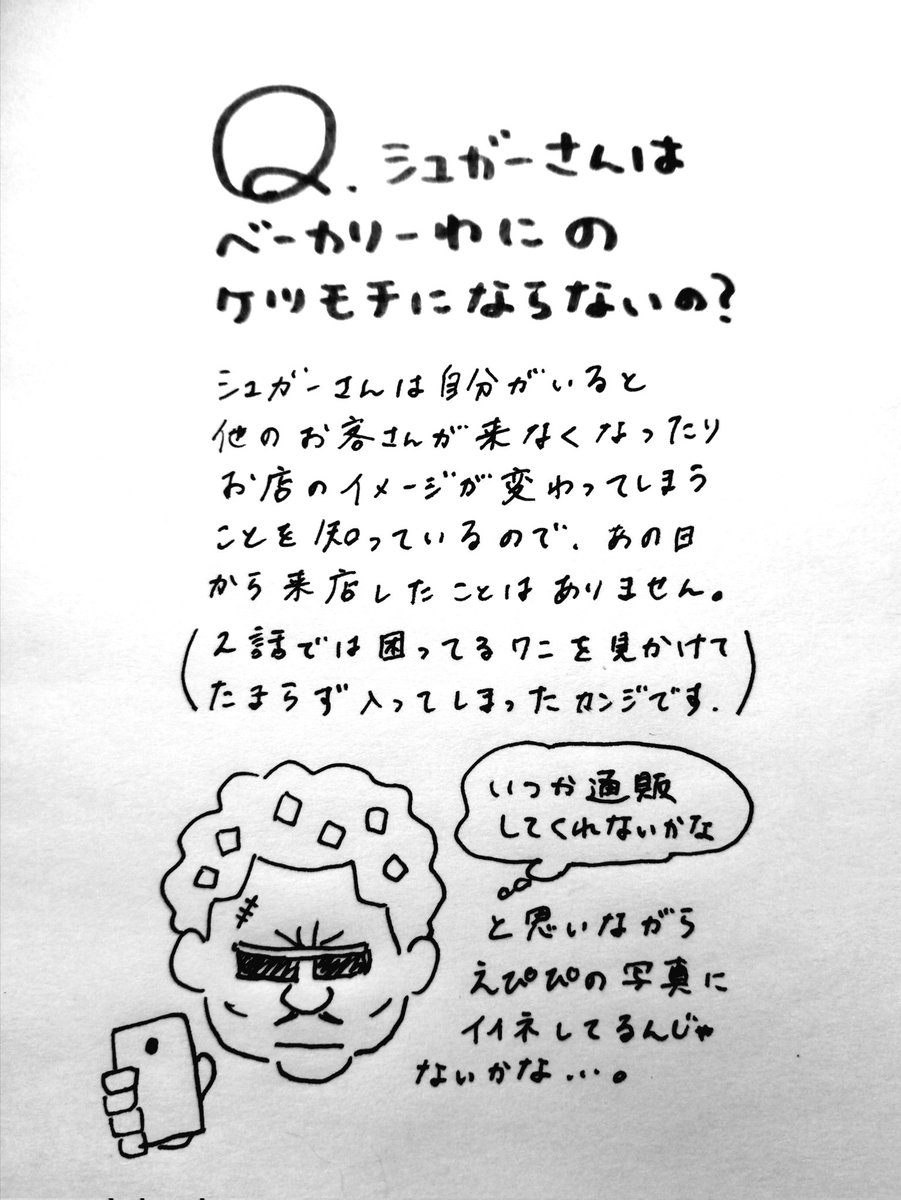 Q.シュガーさんは
ベーカリーわにの
ケツモチにならないの?
シュガーさんは自分がいると
他のお客さんが来なくなったり
お店のイメージが変わってしまう
ことを知っているので、あの日
から来店したことはありません。
(2話では困ってるワニを見かけて
たまらず入ってしまったカンジです.)
いつか通販
してくれないかな
と思いながら
えぴぴの写真に
イイネしてるんじゃ
ないかな…。